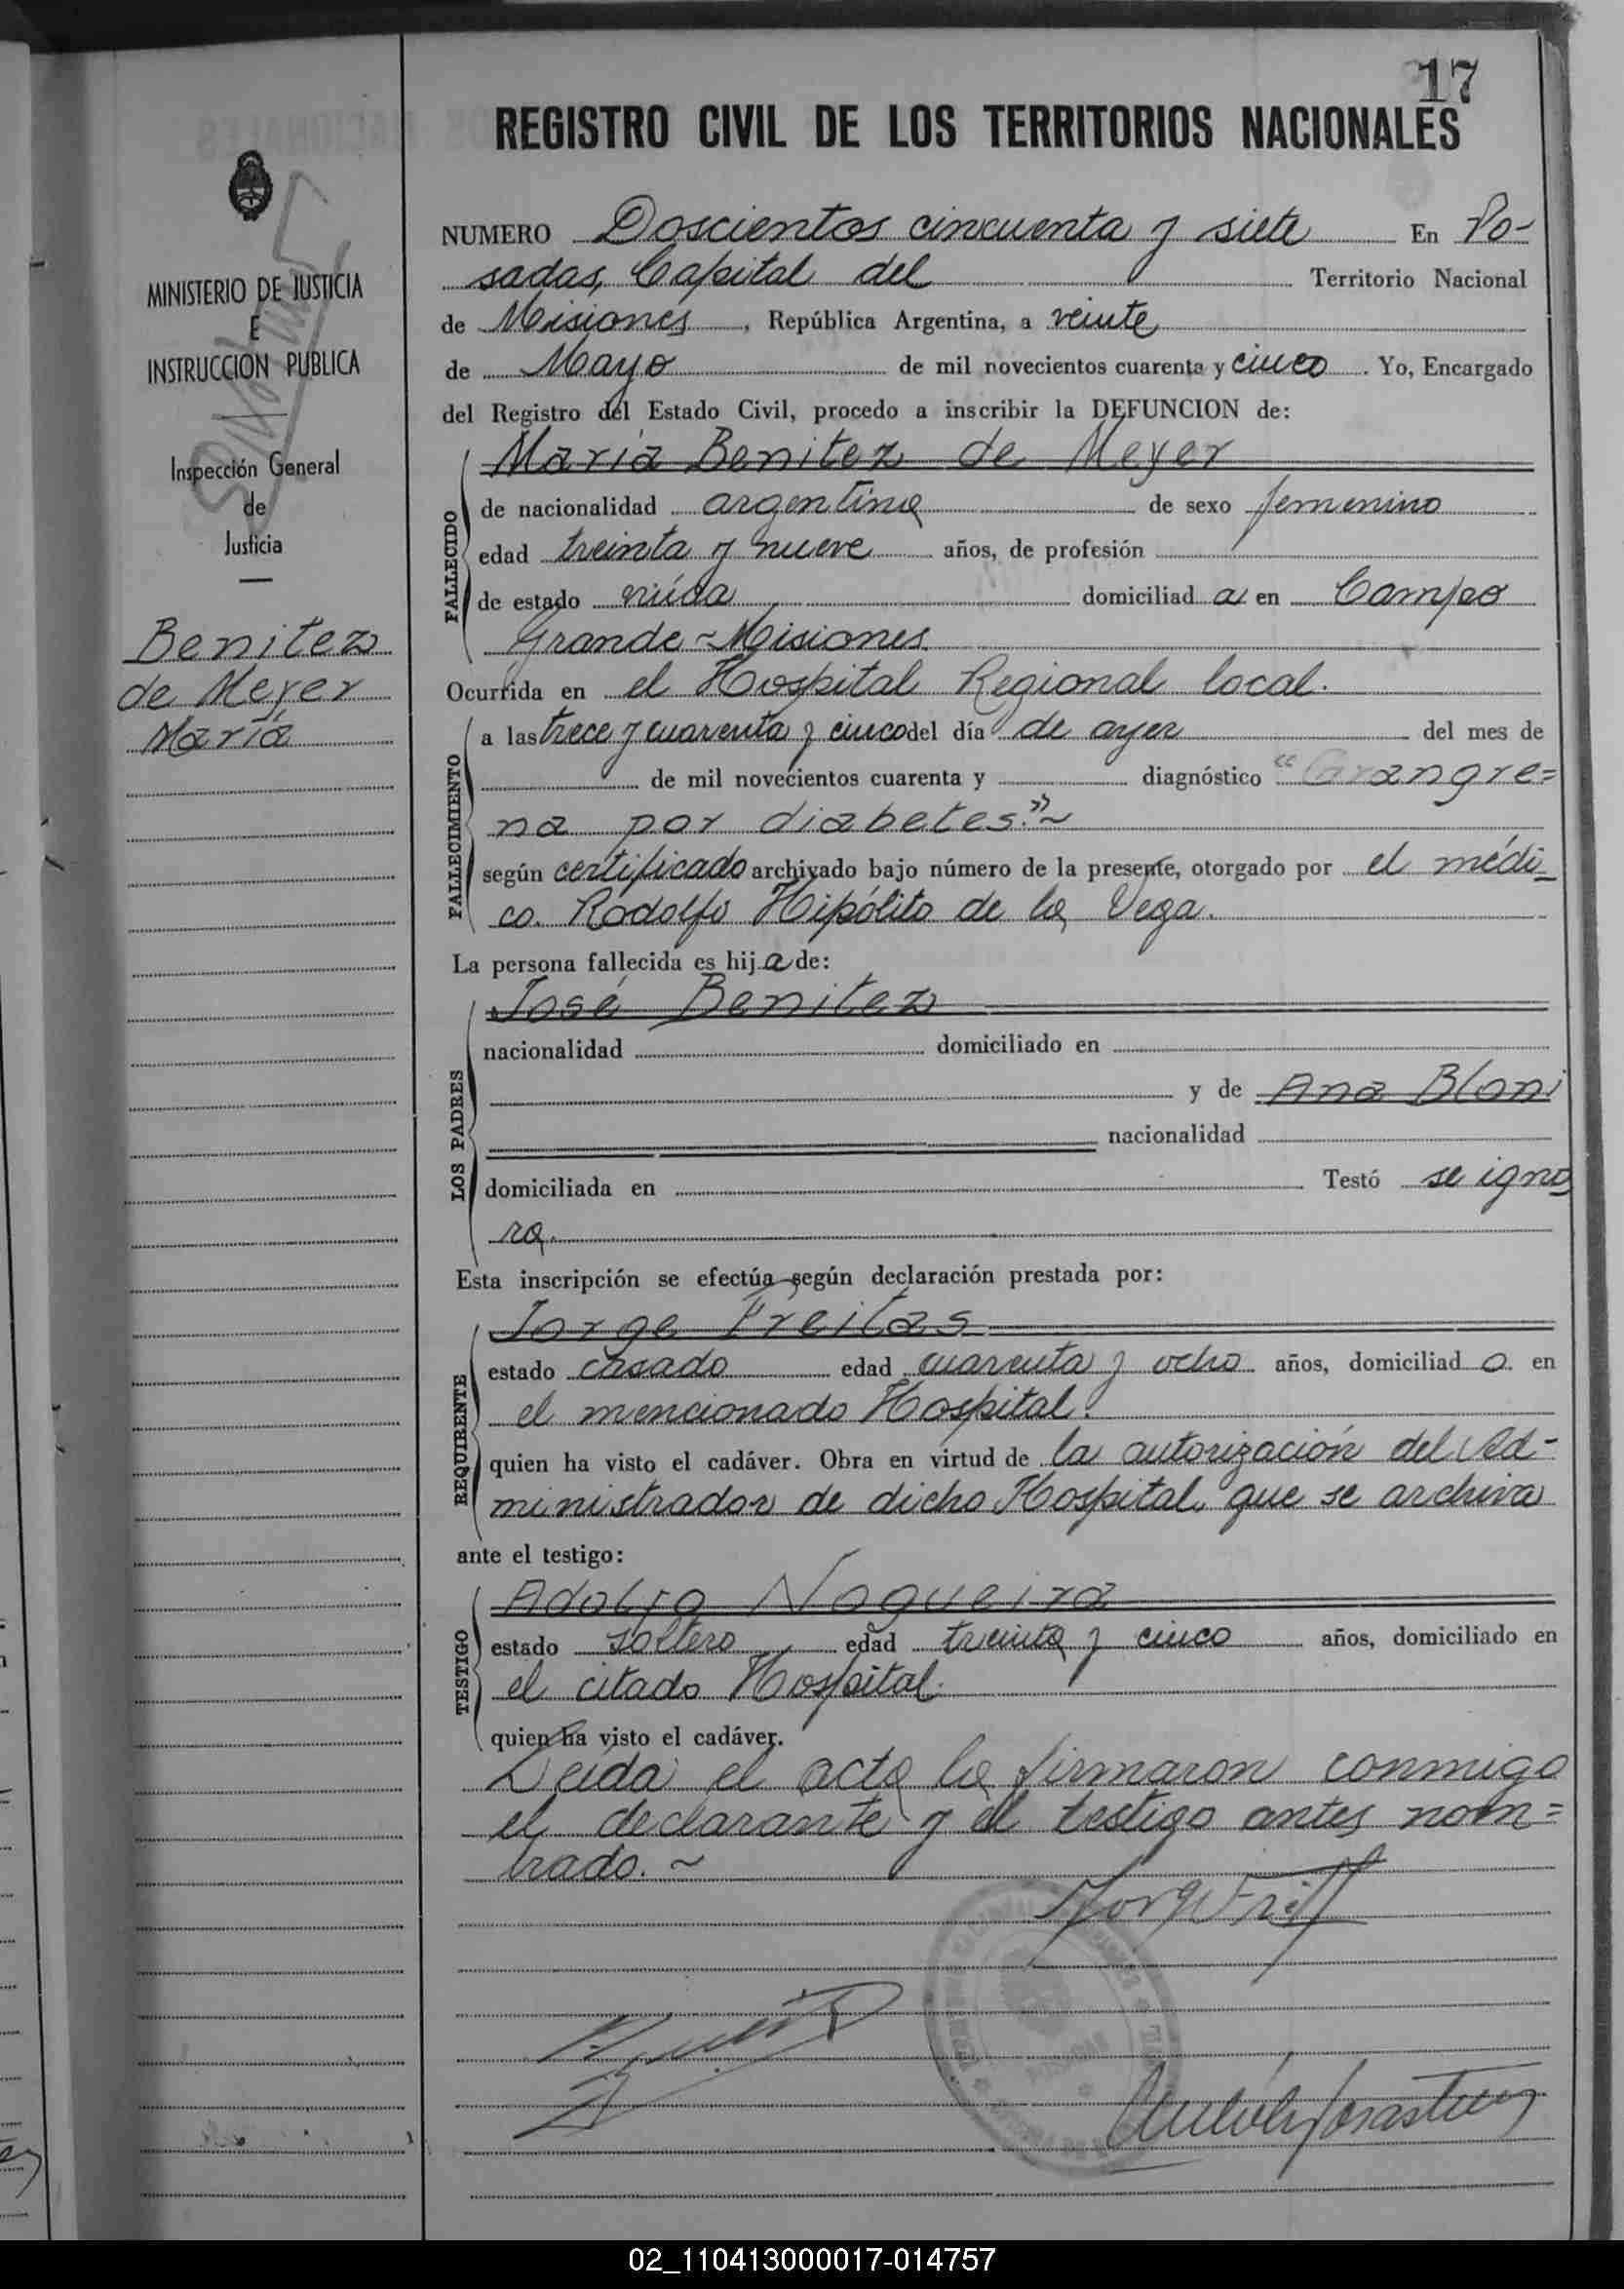 17
REGISTRO CIVIL DE LOS TERRITORIOS NACIONALES
MINISTERIO DE JUSTICIA
E
INSTRUCCION PUBLICA
Inspección General
de
Justicia
Benitez
de Meyer
María
NUMERO Doscientos cincuenta y siete En Po-
sadas, Capital del Territorio Nacional
de Misiones, República Argentina, a veinte
de Mayo de mil novecientos cuarenta y cinco. Yo, Encargado
del Registro del Estado Civil, procedo a inscribir la DEFUNCION de:
FALLECIDO
María Benitez de Meyer
de nacionalidad argentina de sexo femenino
edad treinta y nueve años, de profesión
de estado viúda domiciliad a en Campo
Grande - Misiones
Ocurrida en el Hospital Regional local.
FALLECIMIENTO
a las trece y cuarenta y cinco del día de ayer del mes de
de mil novecientos cuarenta y diagnóstico "Grangre=
na por diabetes." ~
según certificado archivado bajo número de la presente, otorgado por el médi-
co. Rodolfo Hipólito de la Vega.
La persona fallecida es hij a de:
LOS PADRES
José Benitez
nacionalidad domiciliado en
y de Ana Bloni
nacionalidad
domiciliada en Testó se igno
ra.
Esta inscripción se efectúa según declaración prestada por:
REQUIRENTE
Jorge Freitas
estado casado edad cuarenta y ocho años, domiciliad o en
el mencionado Hospital.
quien ha visto el cadáver. Obra en virtud de la autorización del Ad-
ministrador de dicho Hospital, que se archiva
ante el testigo:
TESTIGO
Adolfo Nogueira
estado soltero edad treinta y cinco años, domiciliado en
el citado Hospital.
quien ha visto el cadáver.
Leída el acta la firmaron conmigo
el declarante y el testigo antes nom=
brado. ~
02_110413000017-014757